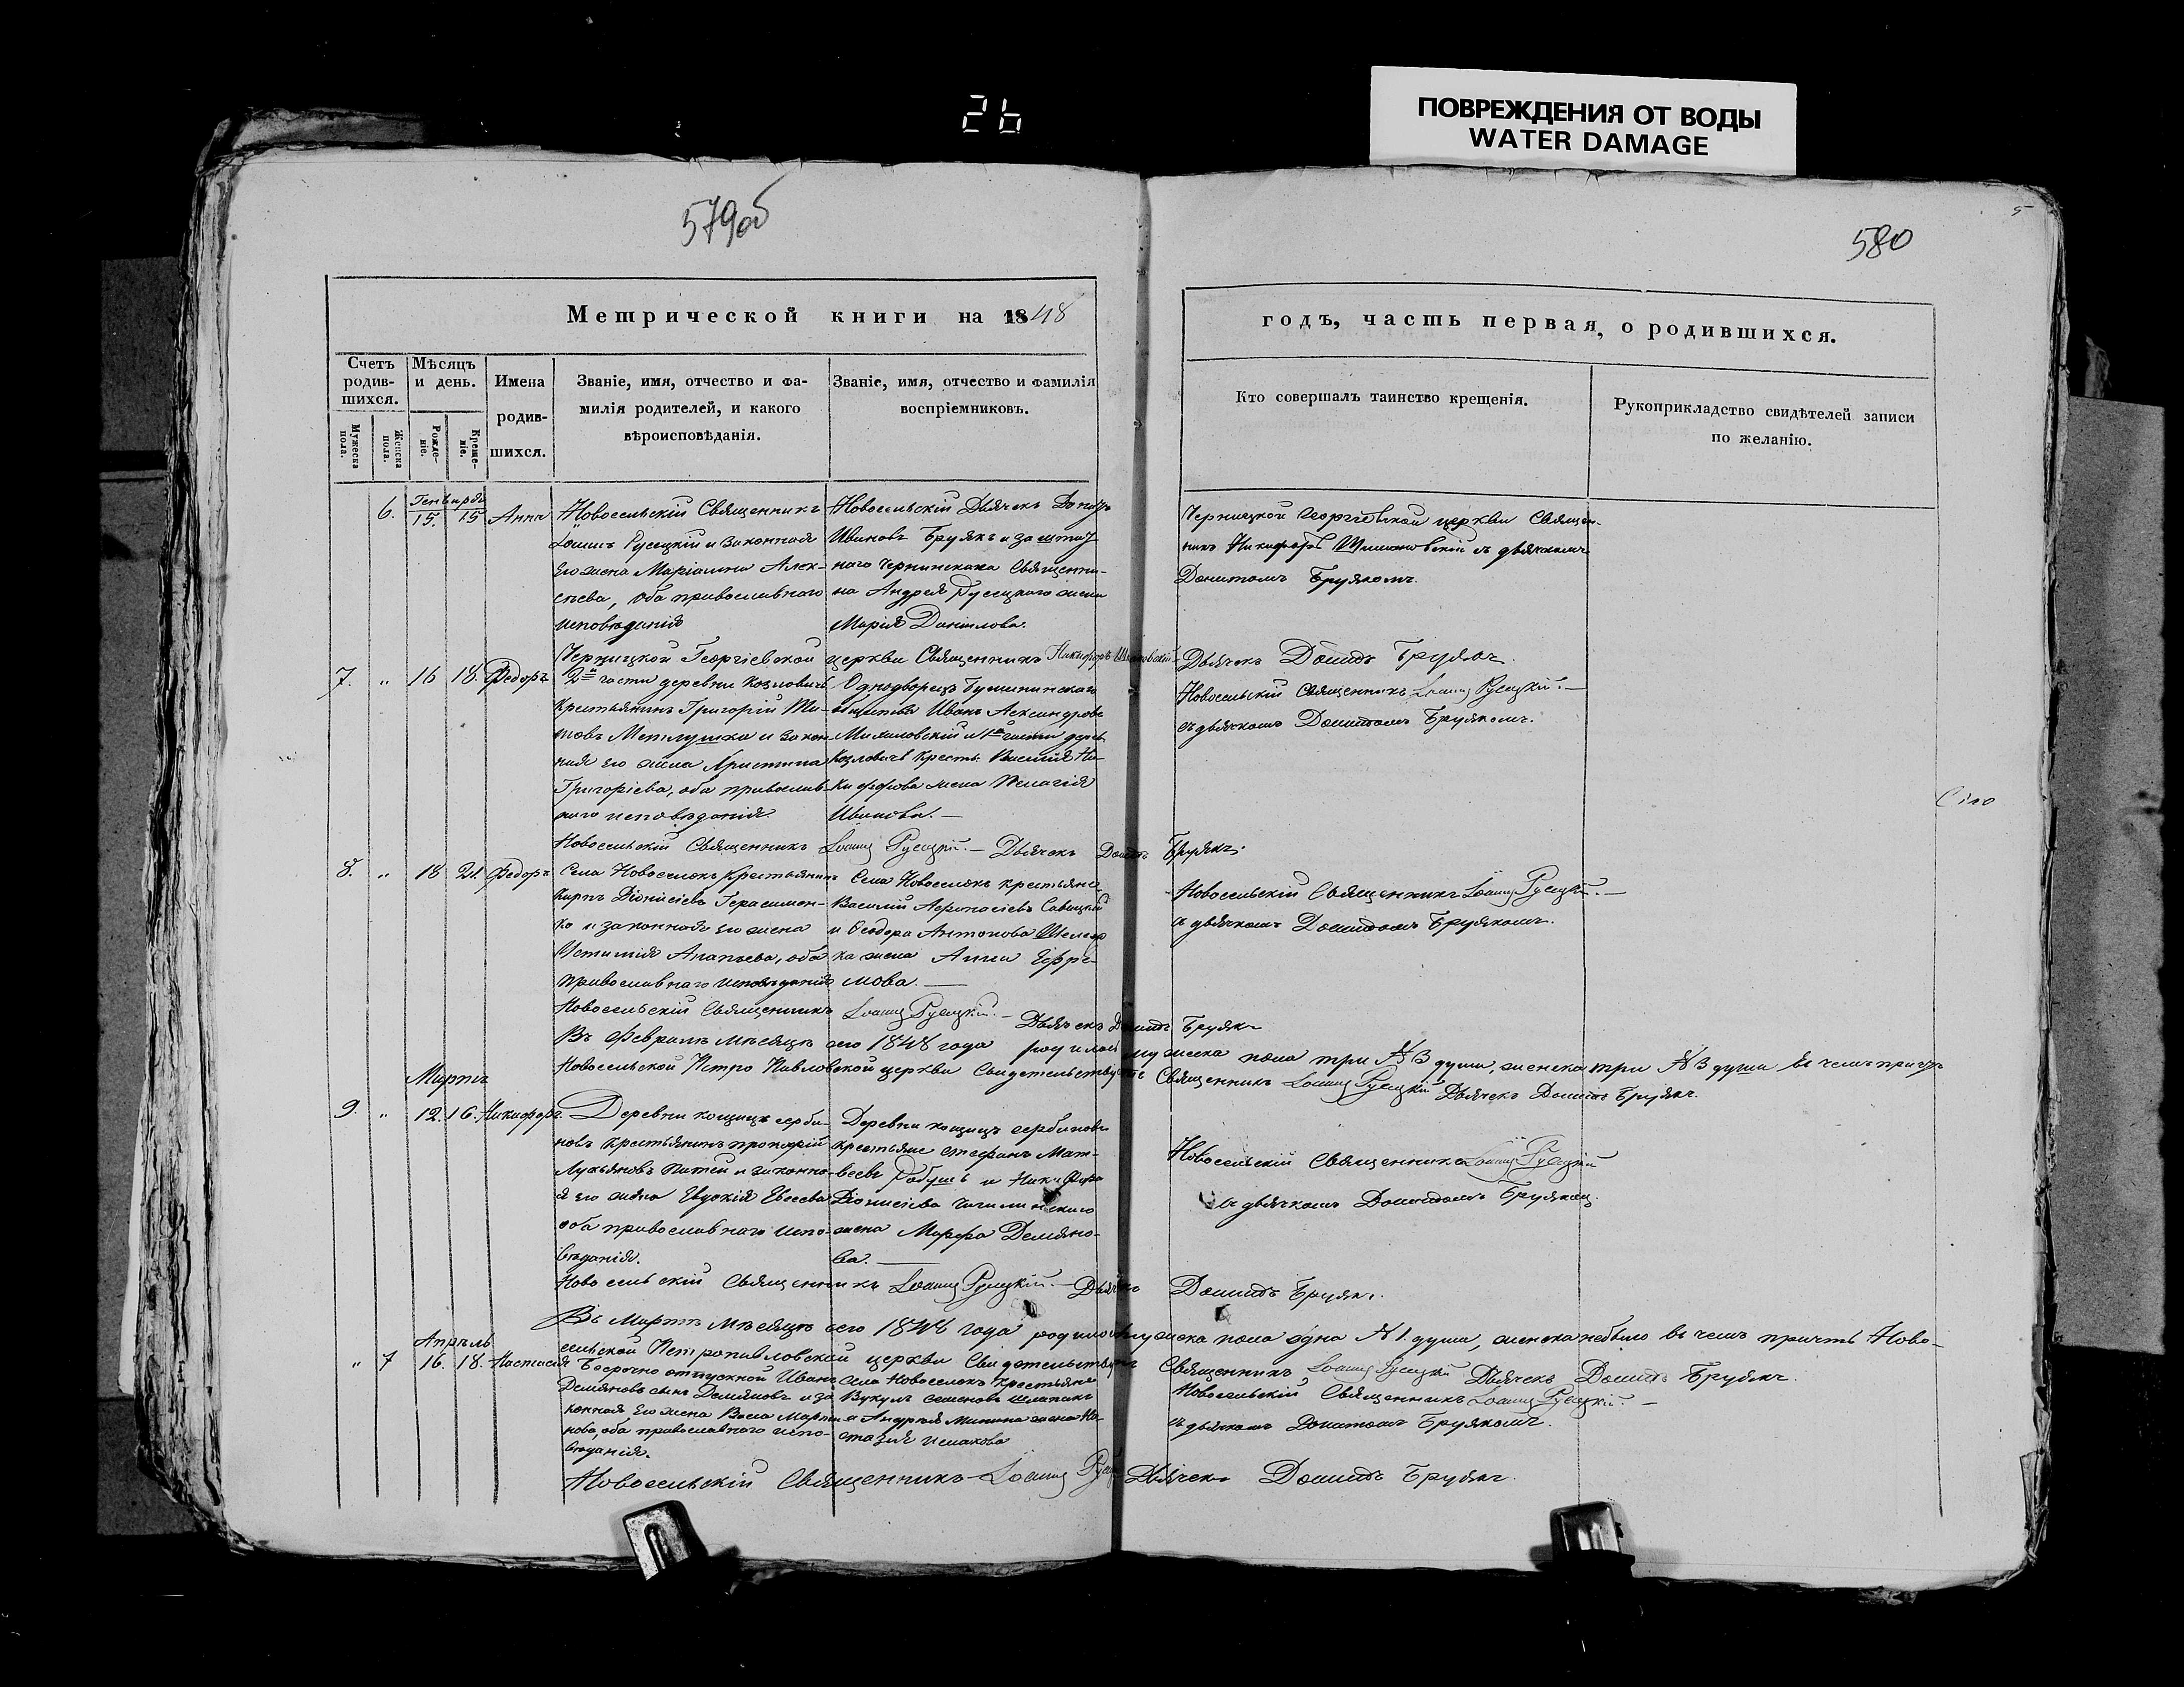 26
ПОВРЕЖДЕНИЯ ОТ ВОДЫ
WATER DAMAGE
579об
580
5
Метрической книги на 1848
годъ, часть первая, о родившихся.
Счетъ родив-шихся.
Мужеска пола.
Женска пола.
Мѣсяцъ и день.
Рожде-ніе.
Креще-ніе.
Имена родив-шихся.
Званіе, имя, отчество и фа-
милія родителей, и какого
вѣроисповѣданія.
Званіе, имя, отчество и фамилія
воспріемниковъ.
Кто совершалъ таинство крещенія.
Рукоприкладство свидѣтелей записи
по желанію.
Генваря
6. 15. 15 Анна
Новосельскій Священникъ
Іоаннъ Русецкій и законная
его жена Маріамна Алек-
сѣева, оба православнаго
исповѣданія
Новосельскій Дьячекъ Донатъ
Ивановъ Брудякъ и заштат
наго Священни-
ка Андрея Русецкаго жена
Марія Данілова.
Черницкой Георгіевской церкви Священ-
никъ Никифоръ съ дьячкомъ
Донатомъ
Черницкой Георгіевской церкви Священникъ Никифоръ
Дьячекъ Донатъ
7. " 16 18. Федоръ
2й части деревни Козловичъ
Крестьянинъ Григорій Ти-
товъ Метлушка и закон
ная его жена Христина
Григоріева, оба православ
наго исповѣданія
Однодворецъ
Иванъ Александровъ
и 1й части дерев.
Козловичъ Крестья. Ни-
кифорова жена Пелагія
Иванова. —
Новосельскій Священникъ Іоаннъ Русецкій. —
съ дьячкомъ Донатомъ
Сіло
Новосельскій Священникъ Іоаннъ Русецкій. — Дьячекъ Донатъ
8. " 18 21. Федоръ
Села Новоселокъ Крестьянинъ
Карпъ Діонисіевъ Герасимен-
ко и законная его жена
оба
православнаго исповѣданія
Села Новоселокъ крестьяне
Василій Афанасіевъ Савицкій
и Ѳеодора Антонова
ка жена Анна Ефре-
мова. —
Новосельскій Священникъ Іоаннъ Русецкій. —
съ дьячкомъ Донатомъ
Новосельскій Священникъ Іоаннъ Русецкій. — Дьячекъ Донатъ
Въ Февралѣ мѣсяцѣ сего 1848 года родилось мужеска пола три №3 души, женска три №3 души въ чемъ причтъ
Новосельской Петро Павловской церкви Свидетельствуетъ Священникъ Іоаннъ Русецкій Дьячекъ Донатъ
Мартъ
9. " 12. 16. Никифоръ.
Деревни кощицъ серби-
новъ крестьянинъ прокофій
Лукьяновъ и законна-
я его жена Евдокія Евсеева
оба православнаго испо-
вѣданія.
Деревни кощицъ сербиновъ
крестьяне стефанъ Мат-
веевъ и Никифора
Діонисіева
жена Марфа Демяно-
ва. —
Новосельскій Священникъ Іоаннъ Русецкій
съ дьячкомъ Донатомъ
Новосельскій Священникъ Іоаннъ Русецкій. — Дьячекъ Донатъ
Въ Мартѣ мѣсяцѣ сего 1848 года родилось мужеска пола одна №1. душа, женска небыло въ чемъ причтъ Ново-
сельской Петропавловской церкви Свидетельствуетъ Священникъ Іоаннъ Русецкій Дьячекъ Донатъ
Апрѣль
" 7 16. 18. Настасія
отпускной Иванъ
Демяновъ сынъ Демяновъ и за
конная его жена Васса Марти-
нова, оба православнаго испо-
вѣданія.
Села Новоселокъ Крестьяне
Вукулъ Семеновъ
и Андрея Минина жена На-
стазія Исаакова
Новосельскій Священникъ Іоаннъ Русецкій. —
съ дьячкомъ Донатомъ
Новосельскій Священникъ Іоаннъ Дьячекъ Донатъ